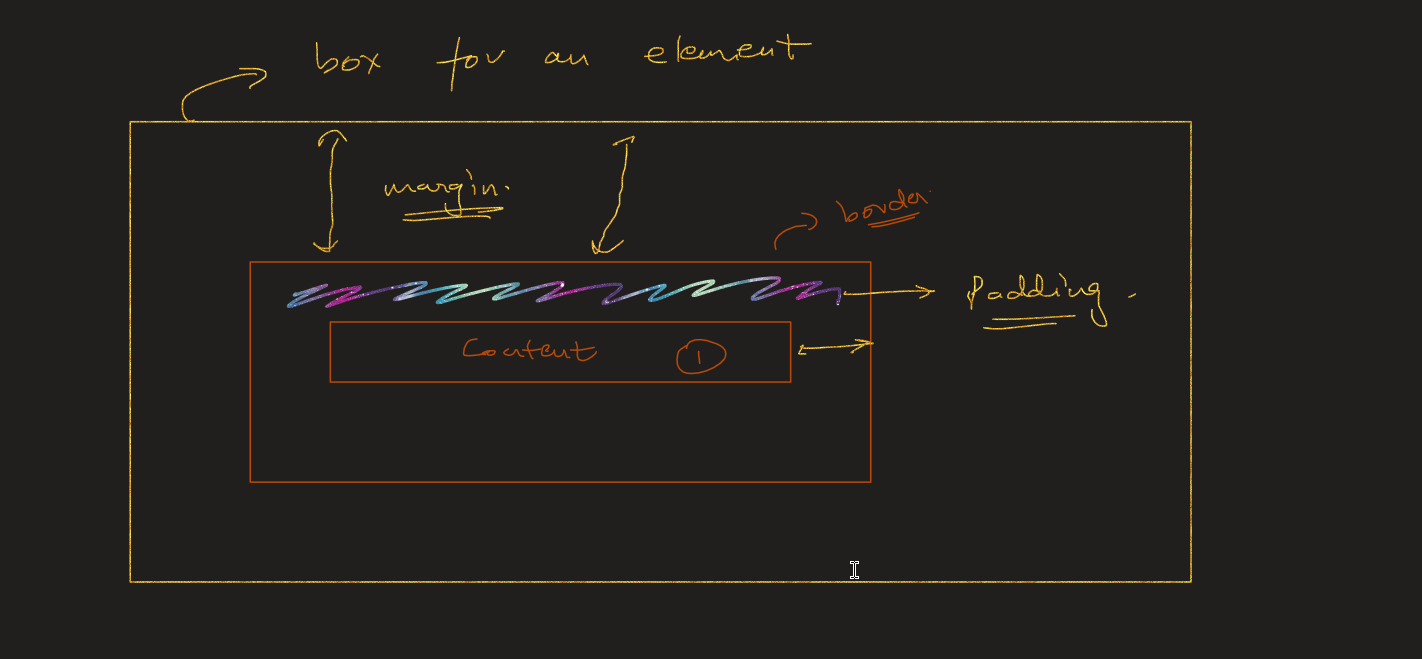 box for an element
margin.
border
Padding.
Content 1